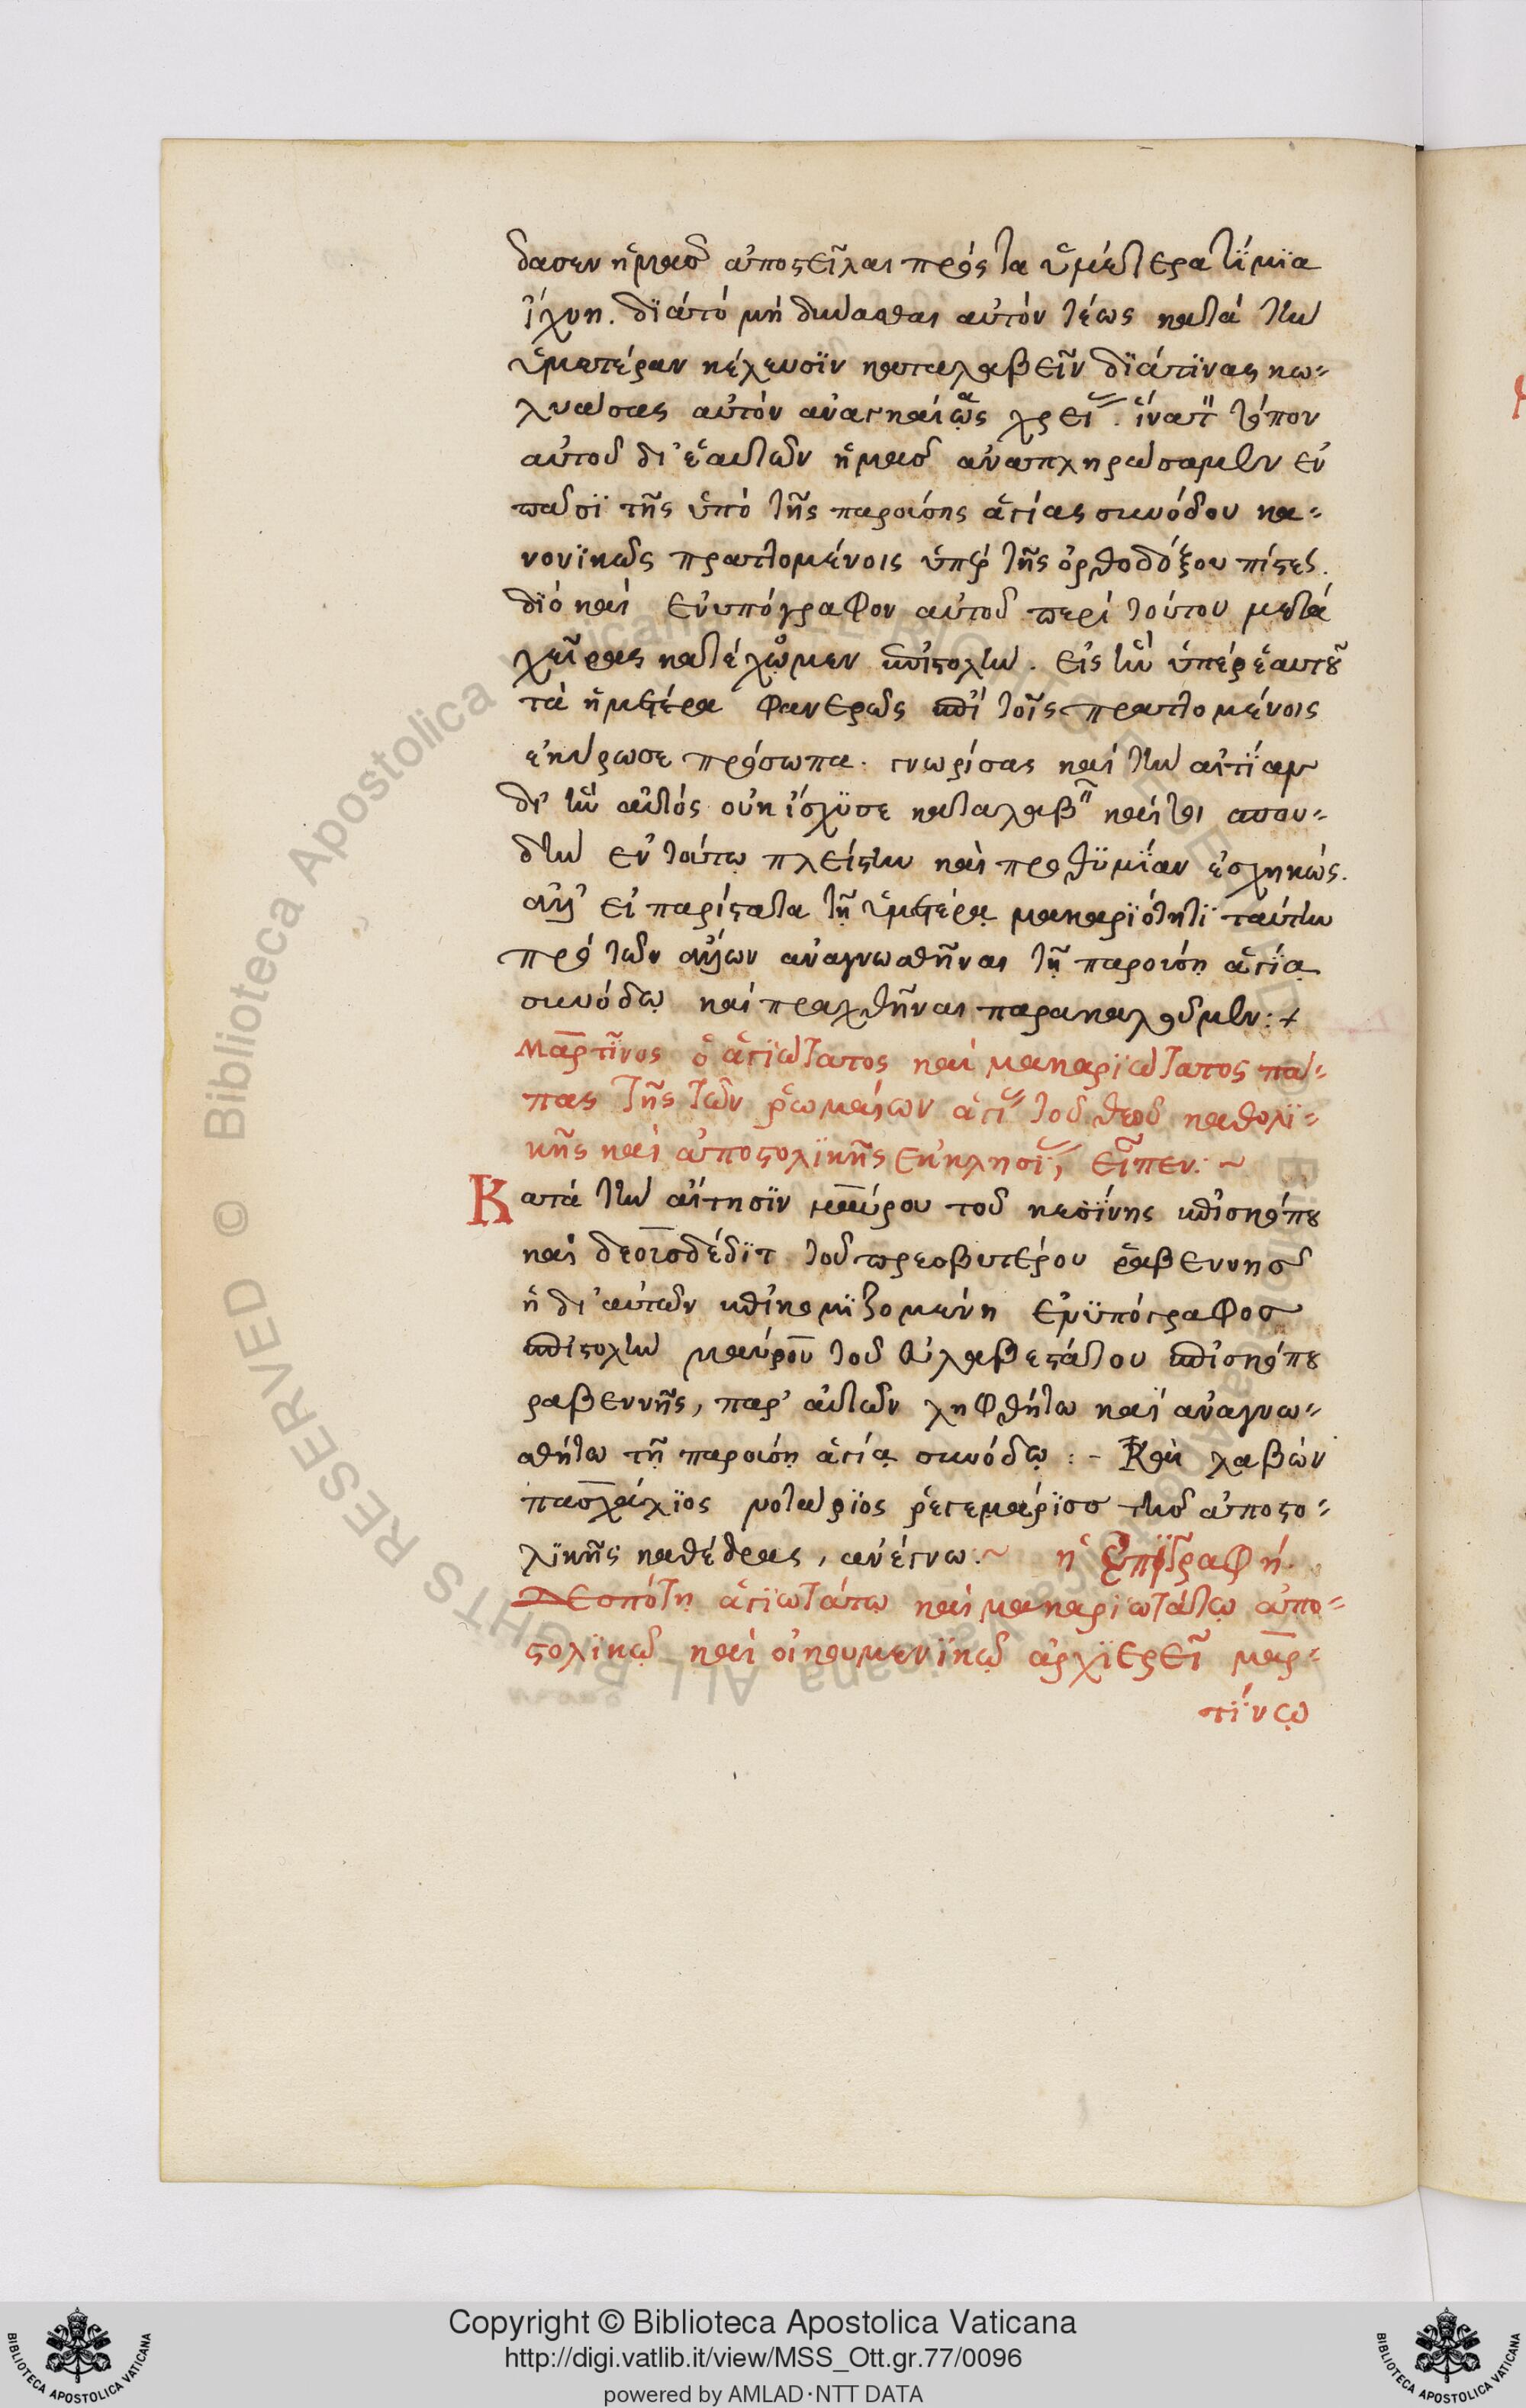 δασεν ἡμᾶσ ἀποστεῖλαι πρός τα ὑμέτερα τΐμϊα
ΐχνη. δϊάτό μή δύνασθαι αὐτόν τέως κατά τὴν
ὑμετέραν κέλευσϊν καταλαβεῖν δϊάτϊνας κω-
λυούσας αὐτόν ἀναγκαίας χρείας. ἵνα τὸν τόπον
αὐτοῦ δι' ἑαυτῶν ἡμᾶσ ἀναπληρώσωμεν ἐν
πᾶσϊ τοῖς ὑπό τῆς παρούσης ἁγίας συνόδου κα-
νονϊκῶς πραττομένοις ὑπὲρ τῆς ὀρθοδόξου πίστεως.
δϊό καί ἐνυπόγραφον αὐτοῦ περί τούτου μετά
χεῖρας κατέχομεν ἐπιστολήν. εἰς ἣν ὑπέρ ἑαυτοῦ
τὰ ἡμέτερα φανερῶς ἐπί τοῖς πραττομένοις
ἐκύρωσε πρόσωπα. γνωρίσας καί τὴν αἰτΐαν
δι' ἣν αὐτός οὐκ ἴσχϋσε καταλαβεῖν καίτοι σπου-
δήν ἐν τούτῳ πλείστην καὶ προθϋμΐαν ἐσχηκώς.
ἀλλ' εἰ παρίσταται τῇ ὑμετέρᾳ μακαρϊότητϊ ταύτην
πρό τῶν ἄλλων ἀναγνωσθῆναι τῇ παρούσῃ ἁγΐᾳ
συνόδῳ καί πραχθῆναι παρακαλοῦμεν:+
Μαρτῖνος ὁ ἁγϊώτατος καί μακαρϊώτατος πά-
πας τῆς τῶν ῥωμαίων ἁγίας τοῦ θεοῦ καθολϊ-
κῆς καὶ ἀποστολϊκῆς ἐκκλησίας, εἶπεν: ~
Κατά τὴν αἴτησϊν μαύρου τοῦ κεσΐνης ἐπισκόπου
καί δεουσδέδϊτ τοῦ πρεσβυτέρου ῥαβεννησ
ἡ δι' αὐτῶν ἐπικομϊζομένη ἐνϋπόγραφοσ
ἐπιστολήν μαύρου τοῦ εὐλαβεστάτου ἐπισκόπου
ραβεννῆς, παρ' αὐτῶν ληφθήτω καί ἀναγνω-
σθήτω τῇ παρούσῃ ἁγίᾳ συνόδῳ : - Καὶ λαβών
πασχάλϊος νοτάρϊος ῥεγεωνάρϊοσ τῆσ ἀποστο-
λϊκῆς καθέδρας, ἀνέγνω. ~ ἡ ἐπϊγραφή.
Δεσπότῃ ἁγϊωτάτῳ καί μακαρϊωτάτῳ ἀπο-
στολϊκῷ καί οἰκουμενϊκῷ ἀρχϊερεῖ μαρ-
τΐνῳ
Biblioteca Apostolica Vaticana ALL RIGHTS RESERVED ©
Copyright © Biblioteca Apostolica Vaticana
http://digi.vatlib.it/view/MSS_Ott.gr.77/0096
powered by AMLAD·NTT DATA
BIBLIOTECA APOSTOLICA VATICANA
BIBLIOTECA APOSTOLICA VATICANA